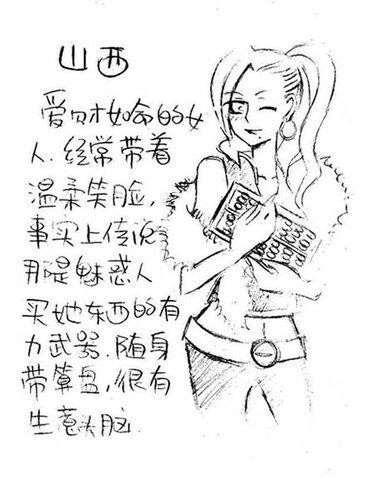 山西
爱财如命的女
人.经常带着
温柔笑脸,
事实上传说
那是魅惑人
买她东西的有
力武器.随身
带算盘,很有
生意头脑.